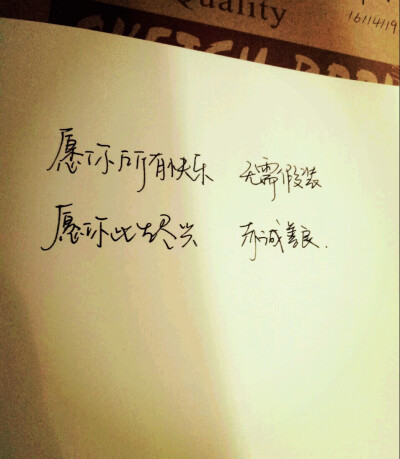 Quality
16114119
SKETCH
愿你所有快乐 无需假装
愿你此生尽兴 赤诚善良.